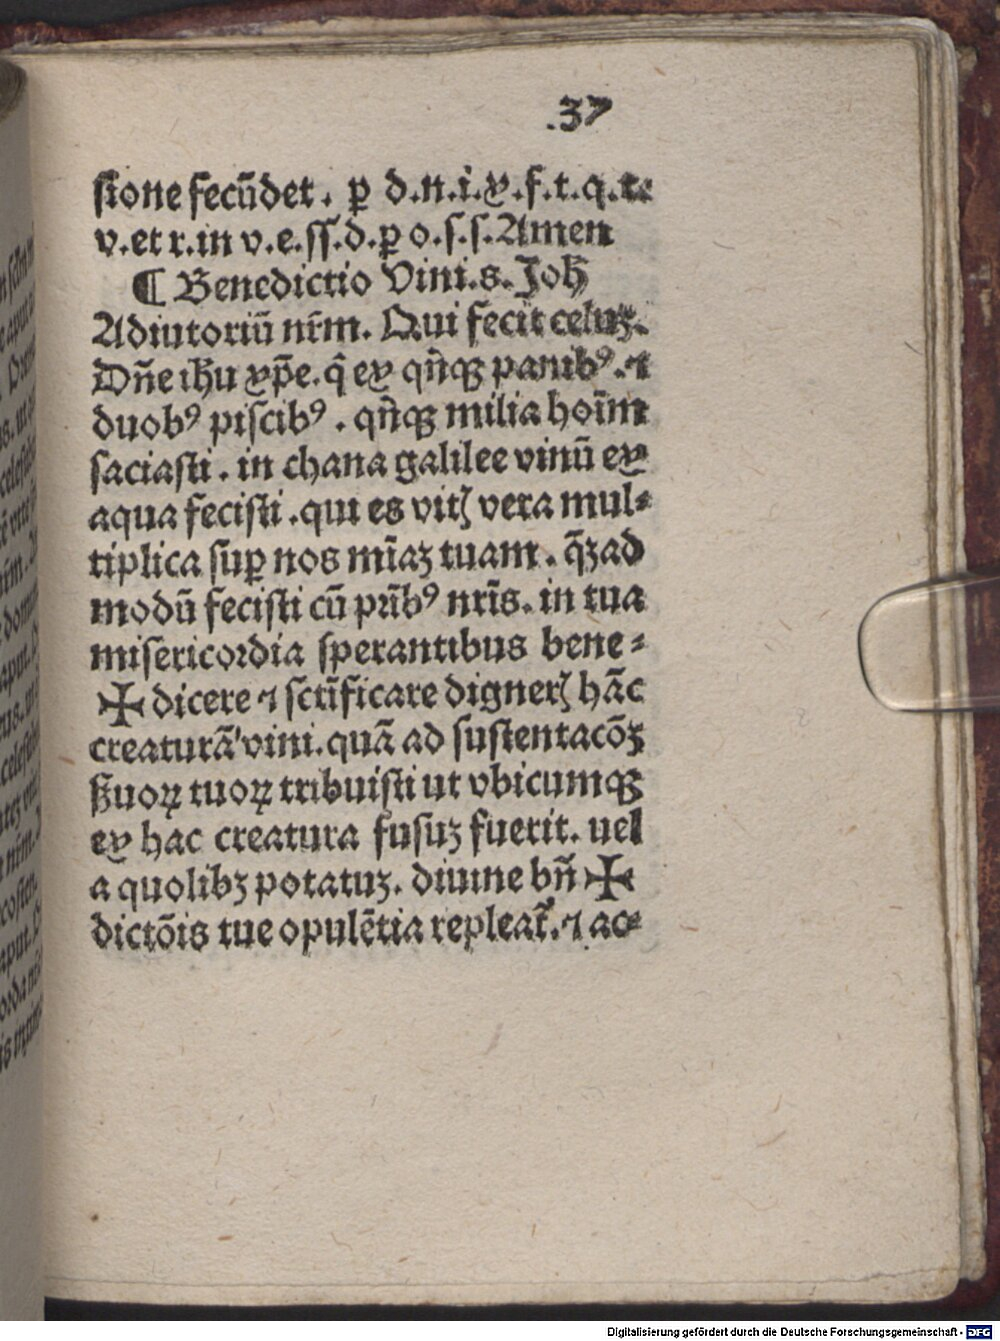 .37
sione fecūdet. ꝑ d.n.i.x.f.t.q.t.
v.et r.in v.e.ſſ.d.ꝑ o.s.s.Amen
¶ Benedictio Vini.s.Joh̄
Adiutoriū nr̄m. Qui fecit celuꝫ.
Dn̄e ih̄u xp̄e. q̄ ex qn̄qꝫ panibꝰ. ⁊
duobꝰ piſcibꝰ. qn̄qꝫ milia hoīm
ſaciaſti. in chana galilee vinū ex
aqua feciſti .qui es vitꝭ vera mul⸗
tiplica ſuꝑ nos mīaꝫ tuam. q̄ꝫad
modū feciſti cū pr̄ibꝰ nr̄is. in tua
miſericordia ſperantibus bene⸗
✠ dicere ⁊ ſct̄ificare dignerꝭ hāc
creaturā vini.quā ad ſuſtentacōꝫ
ẞuoꝝ tuoꝝ tribuiſti ut vbicumqꝫ
ex hac creatura fuſuꝫ fuerit. uel
a quolibꝫ potatuꝫ. diuine bn̄ ✠
dictōis tue opulētia repleat᷑. ⁊ ac⸗
Digitalisierung gefördert durch die Deutsche Forschungsgemeinschaft - DFG